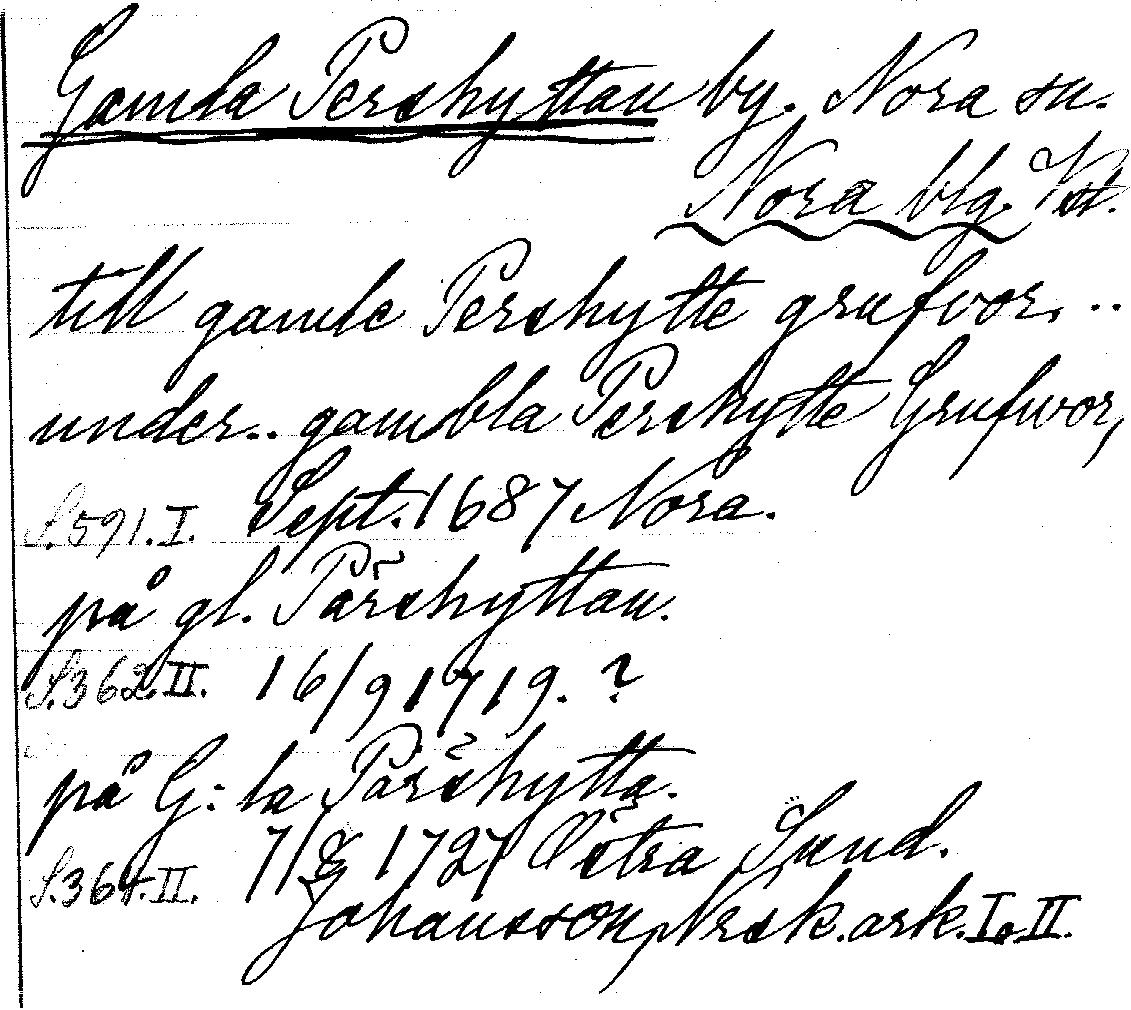 Gamla Pershyttan by. Nora sn.
Nora blg. Vstl.
till gamle Pershytte grufvor. ..
under.. gambla Pershytte Grufwor,
S. 591. I. Sept. 1687 Nora.
på gl. Pärshyttan.
S. 362 II. 16/9 1719. ?
på G:la Pärshytta.
S. 364. II. 7/8 1727 Östra Sund.
Johansson, Nrsk. ark. I, II.